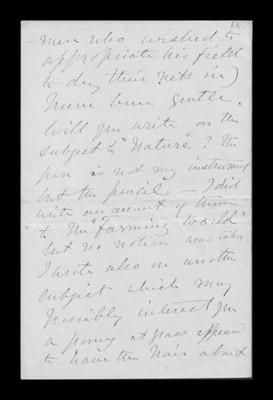 men who wished to
appropriate his field
to dry their nets in)
have been gentle.
Will you write on the
subject to "Nature"? the
pen is not my instrument
but the pencil — I did
write an account of
to the "Farming World"
but no notice was taken
I write also on another
subject which may
possibly interest you
a pony at grass appeared
to have the hair about